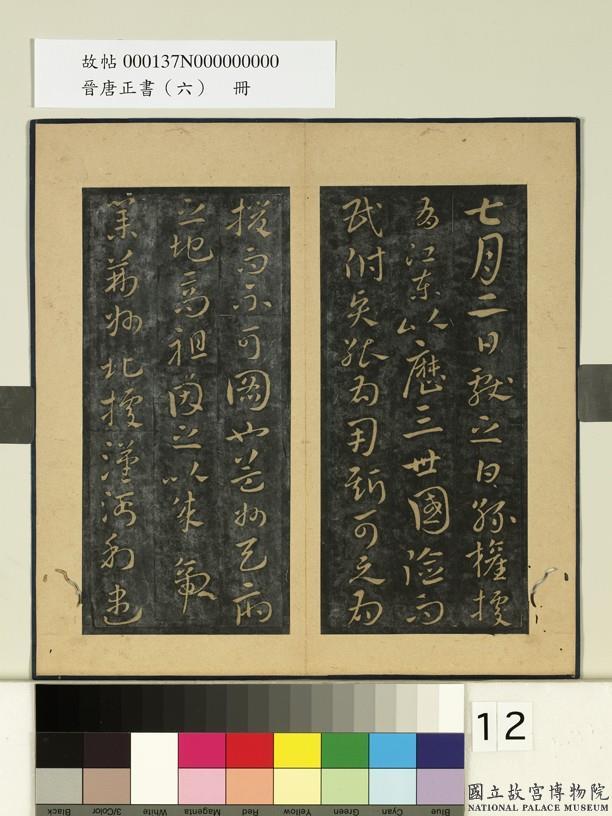 故帖 000137N000000000
晉唐正書（六） 冊
七月二日獻之白孫權據
有江東以歷三世國險而
民附矣能為用斯可之為
援而不可圖也益州
之地高祖因之以成帝
業荊州北據漢沔利盡
Black
3/Color
White
Magenta
Red
Yellow
Green
Cyan
Blue
12
國立故宮博物院
NATIONAL PALACE MUSEUM